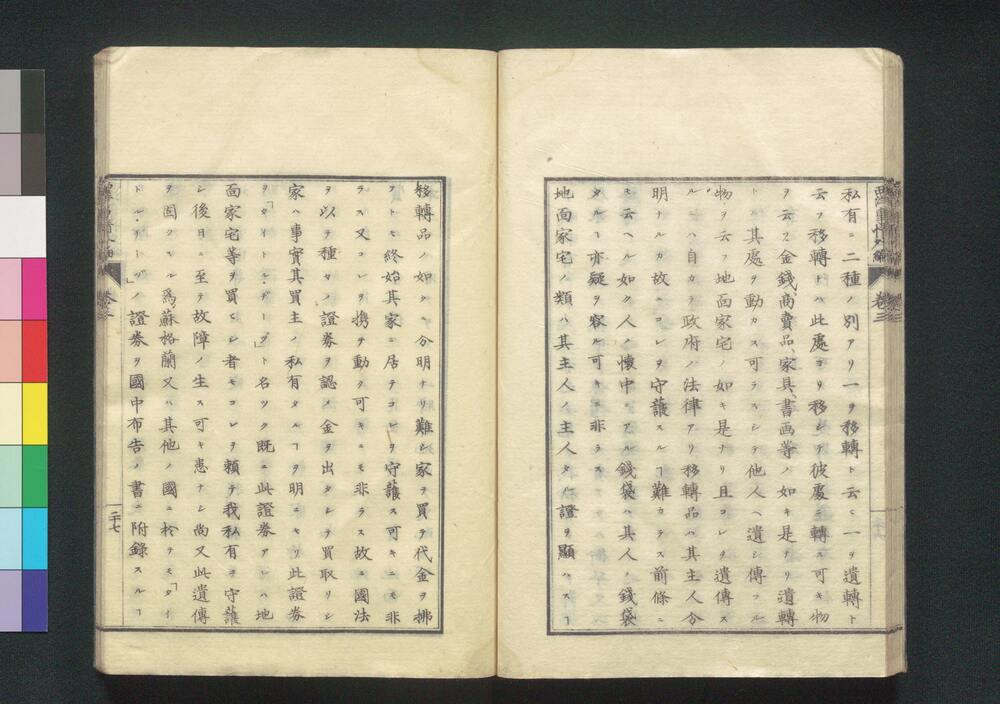 西洋事情外編 卷三
私有ニ二種ノ別アリ一ヲ移轉ト云ヒ一ヲ遺轉ト
云フ移轉トハ此處ヨリ移シテ彼處ニ轉ス可キ物
ヲ云フ金錢、商賣品、家具、書画等ノ如キ是ナリ遺轉
トハ其處ヲ動カス可ラスシテ他人ヘ遺シ傳フル
物ヲ云フ地面家宅ノ如キ是ナリ且コレヲ遺傳ス
ルハ自カラ政府ノ法律アリ移轉品ハ其主人分
明ナルカ故ニコレヲ守護スルヿ難カラス前條ニ
モ云ヘル如ク人ノ懷中ニアル錢袋ハ其人ノ錢袋
タルヿ亦疑ヲ容ル可キニ非ラスト
地面家宅ノ類ハ其主人ノ主人タル證ヲ顯ハスヿ
移轉品ノ如ク分明ナリ難シ家ヲ買テ代金ヲ拂
フトモ終始其家ニ居テコレヲ守護ス可キニモ非
ラス又コレヲ携テ動ク可キニモ非ラス故ニ國法
ヲ以テ種々ノ證券ヲ認メ金ヲ出タシテ買取リシ
家ハ事實其買主ノ私有タルヿヲ明ニセリ此證券
ヲ「タイトル、デード」ト名ツク既ニ此證券アレハ地
面家宅等ヲ買ヒシ者モコレヲ頼テ我私有ヲ守護
シ後日ニ至テ故障ノ生ス可キ患ナシ尚又此遺傳
ヲ固クスル爲、蘇格蘭又ハ其他ノ國ニ於テモ「タイ
トル、デード」ノ證券ヲ國中布告ノ書ニ附錄スルヿ
卷三
二十七